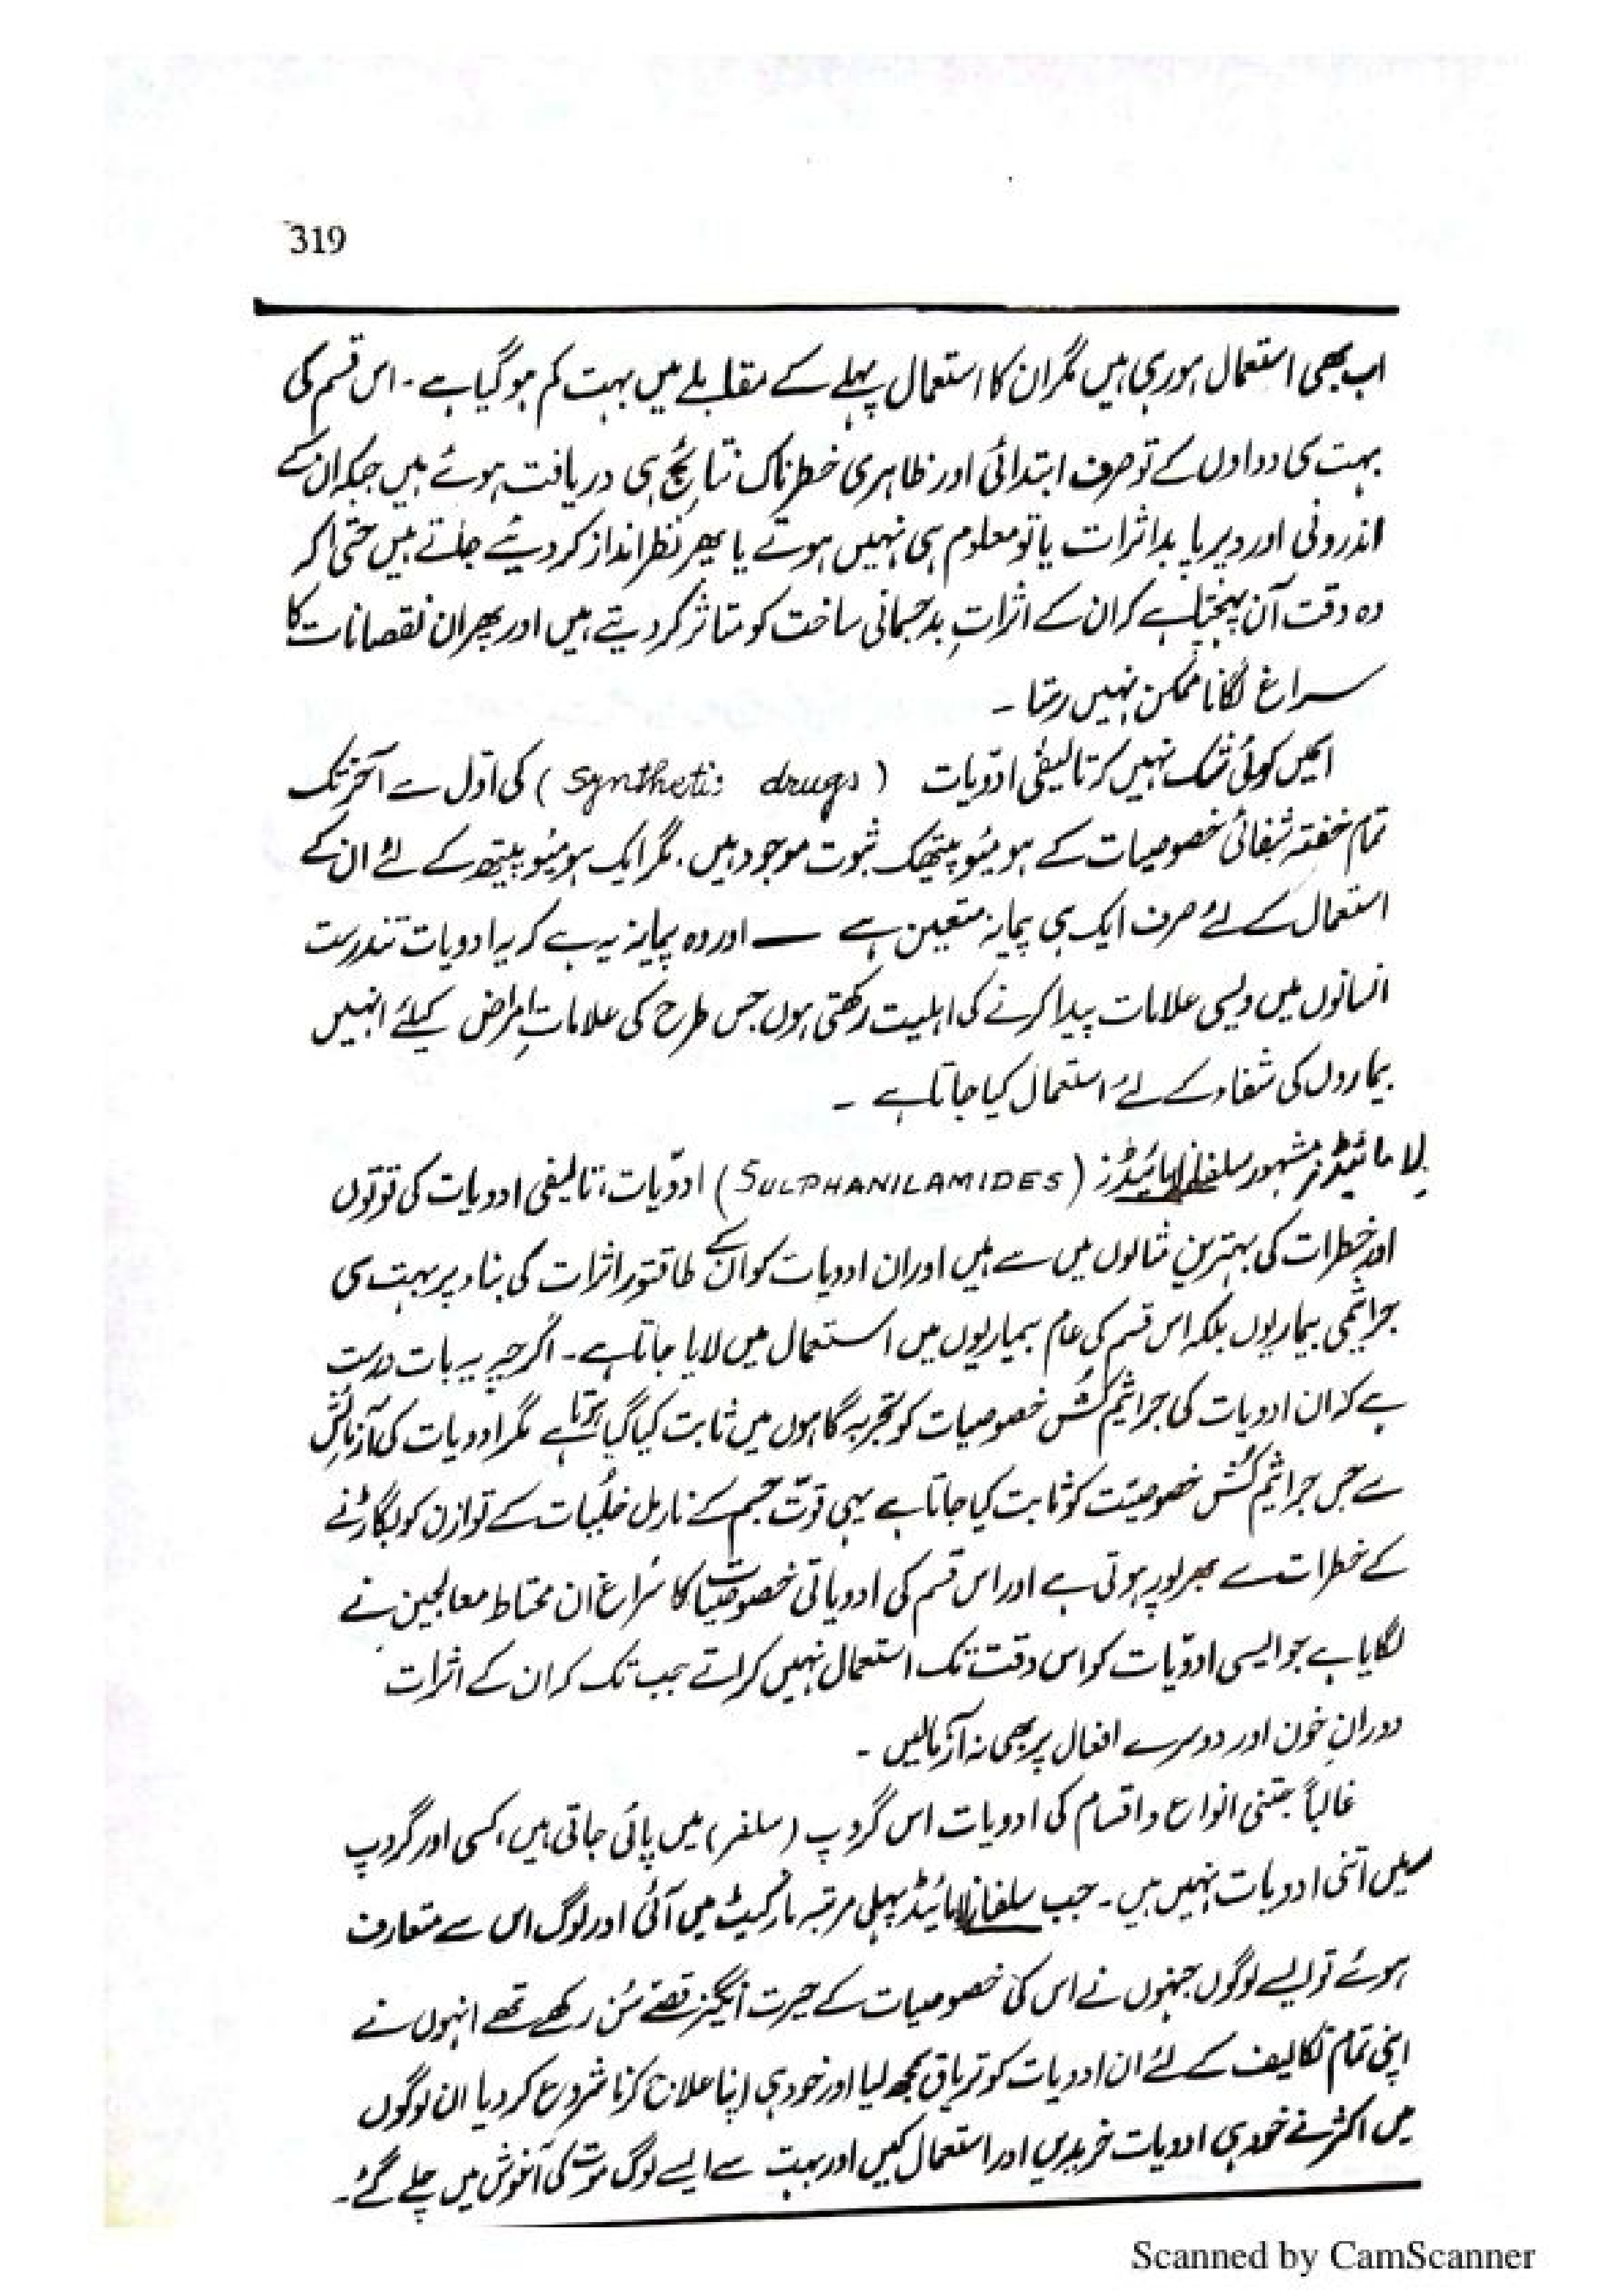 319
اب بھی استعمال ہو رہی ہیں مگر ان کا استعمال پہلے کے مقابلے میں بہت کم ہو گیا ہے۔ اس قسم کی
بہت سی دواوں کے تو صرف ابتدائی اور ظاہری خطرناک نتائج ہی دریافت ہوئے ہیں جبکہ ان کے
اندرونی اور دیرپا بد اثرات یا تو معلوم ہی نہیں ہوتے یا پھر نظر انداز کر دیئے جاتے ہیں حتٰی کہ
وہ وقت آن پہنچتا ہے کہ ان کے اثراتِ بد جسمانی ساخت کو متاثر کر دیتے ہیں اور پھر ان نقصانات کا
سراغ لگانا ممکن نہیں رہتا۔
اس میں کوئی شک نہیں کہ تالیفی ادوّیات (Synthetic drugs) کی اوّل سے آخر تک
تمام خفتہ شفائی خصومیات کے ہومیئوپیتھک ثبوت موجود ہیں۔ مگر ایک ہومیئوپیتھ کے لئے ان کے
استعمال کے لئے صرف ایک ہی پیمانہ متعین ہے — اور وہ پیمانہ یہ ہے کہ یہ ادویات تندرست
انسانوں میں ویسی علامات پیدا کرنے کی اہلیت رکھتی ہوں جس طرح کی علاماتِ امراض کیلئے انہیں
بیماروں کی شفاء کے لئے استعمال کیا جاتا ہے۔
مشہور (SULPHANILAMIDES) ادوّیات، تالیفی ادویات کی قوتوں
اور خطرات کی بہترین مثالوں میں سے ہیں اور ان ادویات کو ان کے طاقتور اثرات کی بناء پر بہت سی
جراثیمی بیماریوں بلکہ اس قسم کی عام بیماریوں میں استعمال میں لایا جاتا ہے۔ اگرچہ یہ بات درست
ہے کہ ان ادویات کی جراثیم کُش خصومیات کو تجربہ گاہوں میں ثابت کیا گیا ہے مگر ادویات کی آزمائش
سے جس جراثیم کُش خصومیّت کو ثابت کیا جاتا ہے یہی قوّت جسم کے نارمل خلیات کے توازن کو بگاڑنے
کے خطرات سے بھرپور ہوتی ہے اور اس قسم کی ادویاتی خصوصیات کا سُراغ ان محتاط معالجین نے
لگایا ہے جو ایسی ادوّیات کو اس وقت تک استعمال نہیں کراتے جب تک کہ ان کے اثرات
دورانِ خون اور دوسرے افعال پر بھی نہ آزما لیں۔
غالباً جتنی انواع و اقسام کی ادویات اس گروپ (سلفر) میں پائی جاتی ہیں، کسی اور گروپ
میں اتنی ادویات نہیں ہیں۔ جب پہلی مرتبہ مارکیٹ میں آئی اور لوگ اس سے متعارف
ہوئے تو ایسے لوگوں جنہوں نے اس کی خصومیات کے حیرت انگیز قصّے سُن رکھے تھے انہوں نے
اپنی تمام تکالیف کے لئے ان ادویات کو تریاق سمجھ لیا اور خود ہی اپنا علاج کرنا شروع کر دیا ان لوگوں
میں اکثر نے خود ہی ادویات خریدیں اور استعمال کیں اور بہت سے ایسے لوگ موت کی آغوش میں چلے گئے۔
Scanned by CamScanner